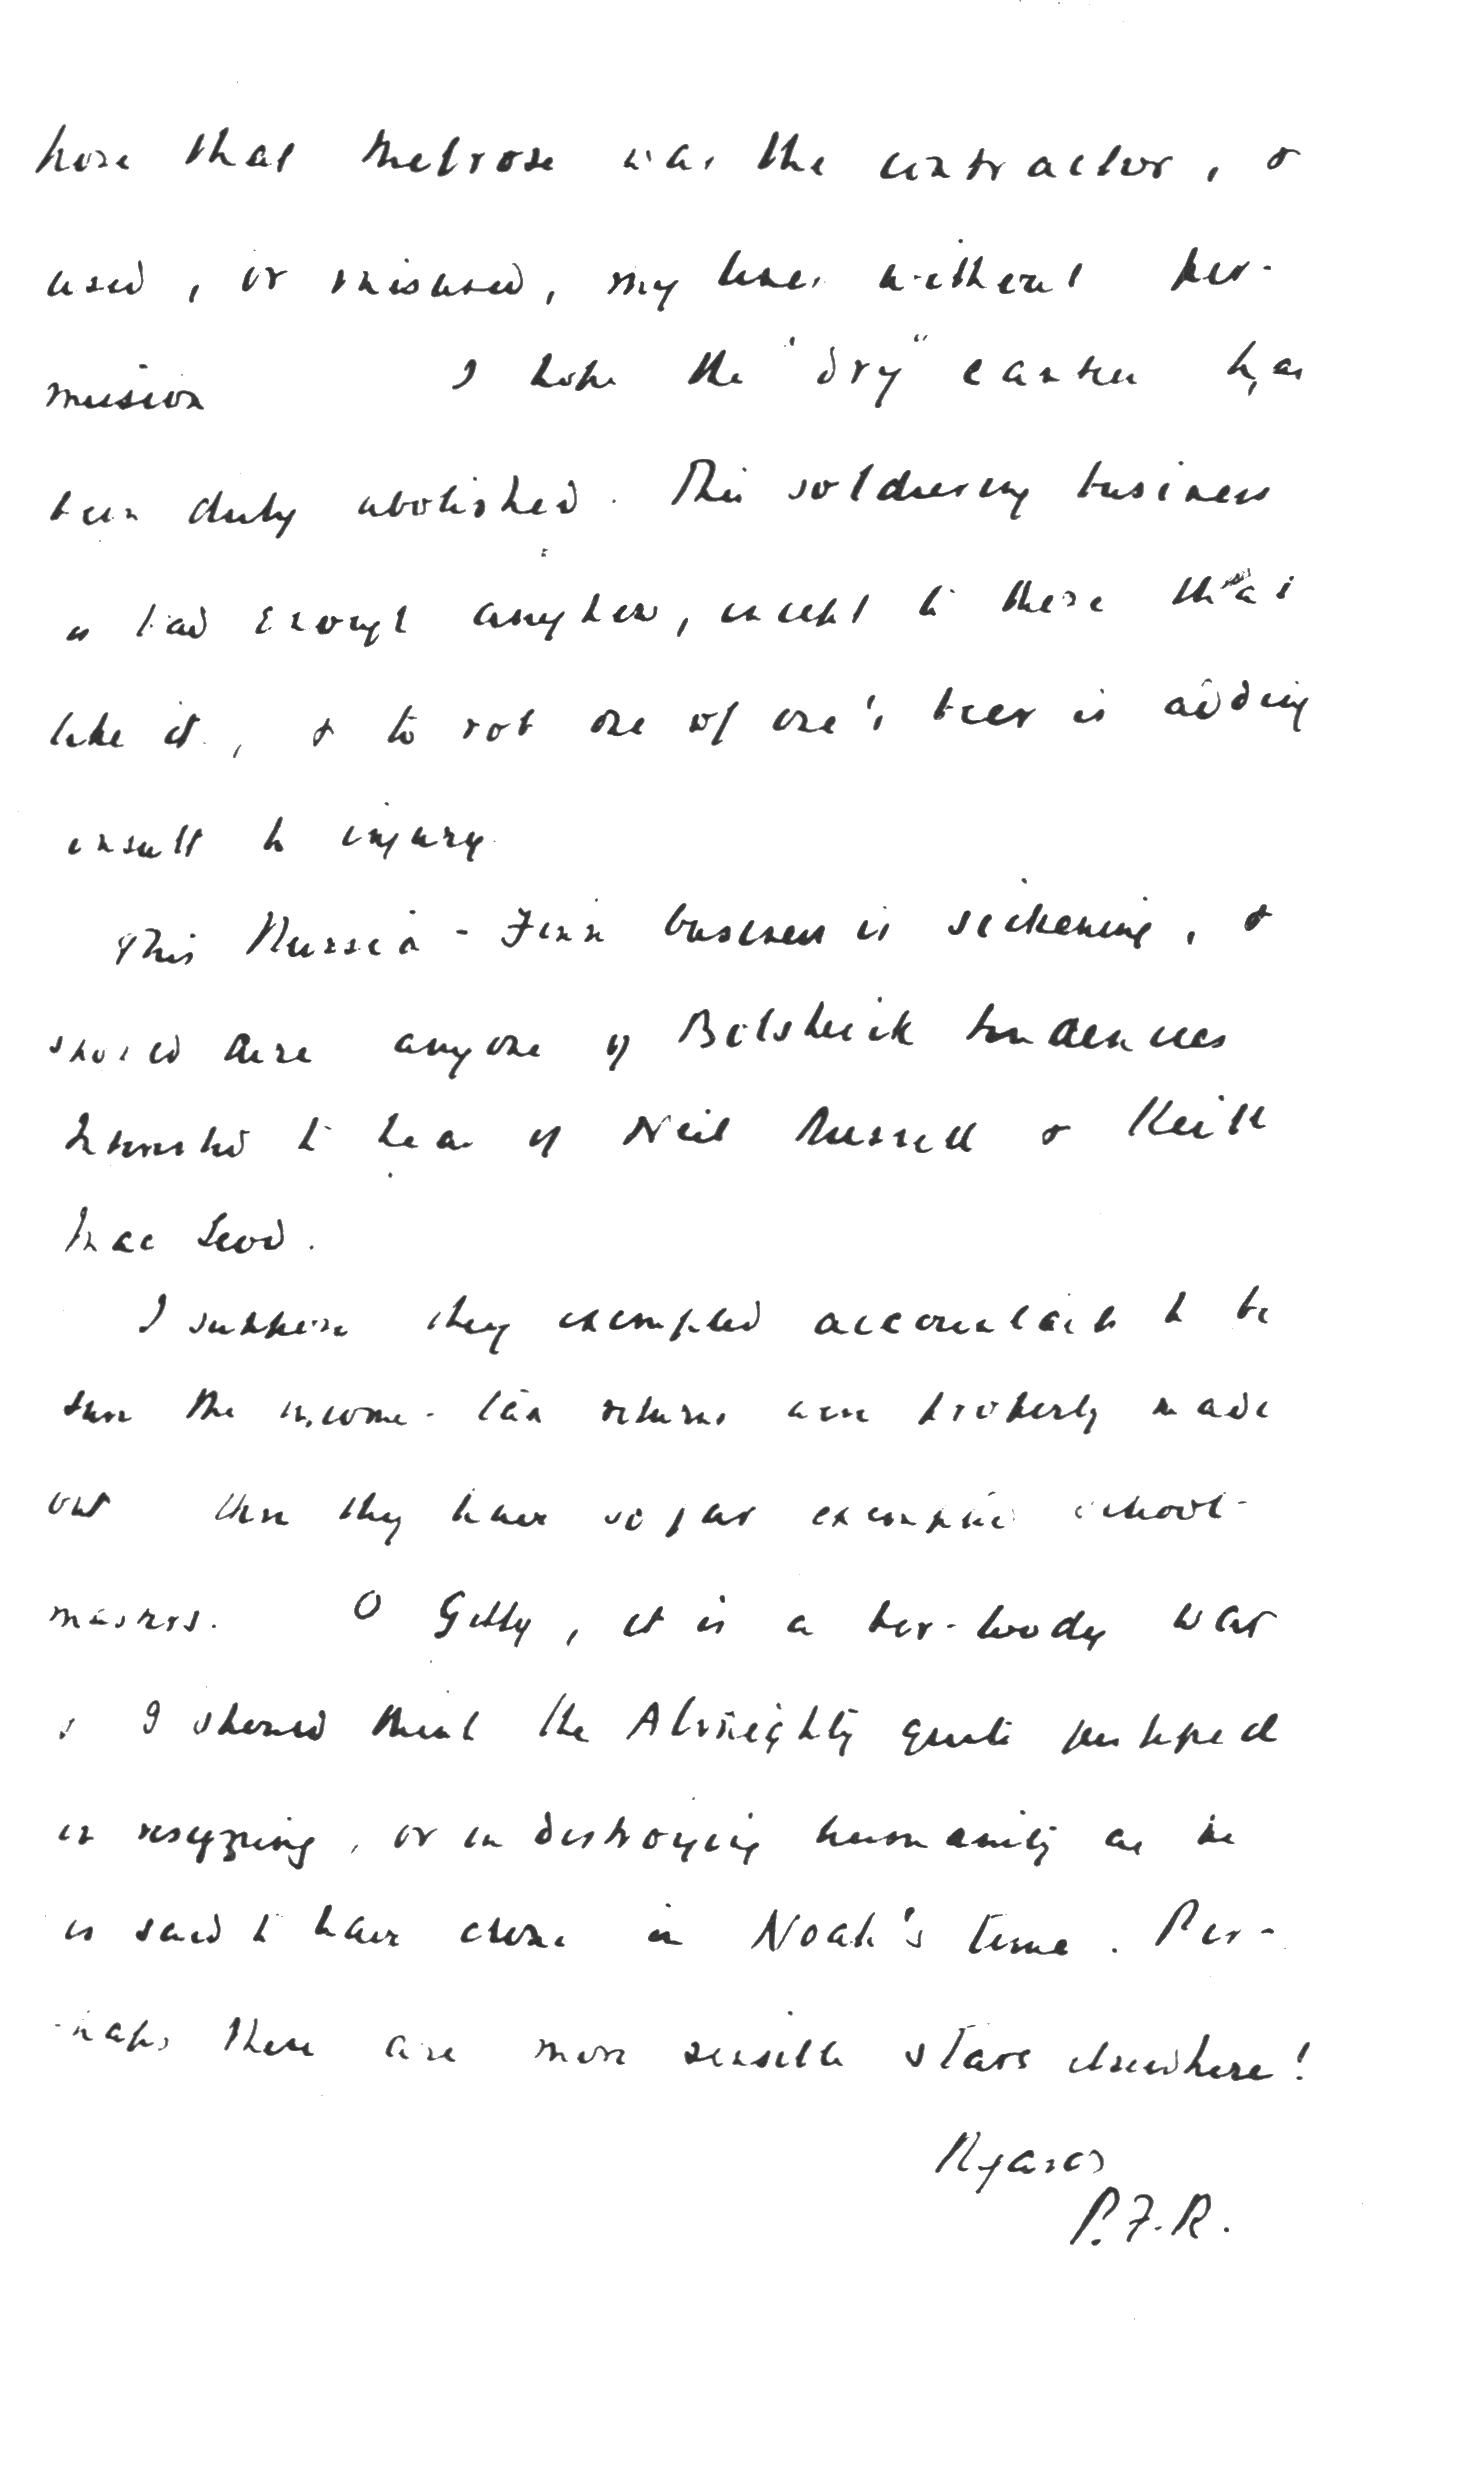 hose that Melrose was the contractor, &
used, or misused, my lines without per-
mission I hope the "dry" canteen has
been duly abolished. This soldiering business
is bad enough anyhow, except to those that
like it, & to rob one of one's beer is adding
insult to injury
This Russia-Finn business is sickening, &
should cure anyone of Bolshevik tendencies
Interested to hear of Neil Russell & Keith
MacLeod.
I suppose they exempted accountants to be
sure the income-tax returns were properly made
out then they have so far exempted school-
masters. O Getty, it is a ber-loody war
& I should think the Almighty quite justified
in resigning, or in destroying humanity as he
is said to have done in Noah's time. Per-
-haps there are more sensible stars elsewhere!
Rgards
P.F.R.